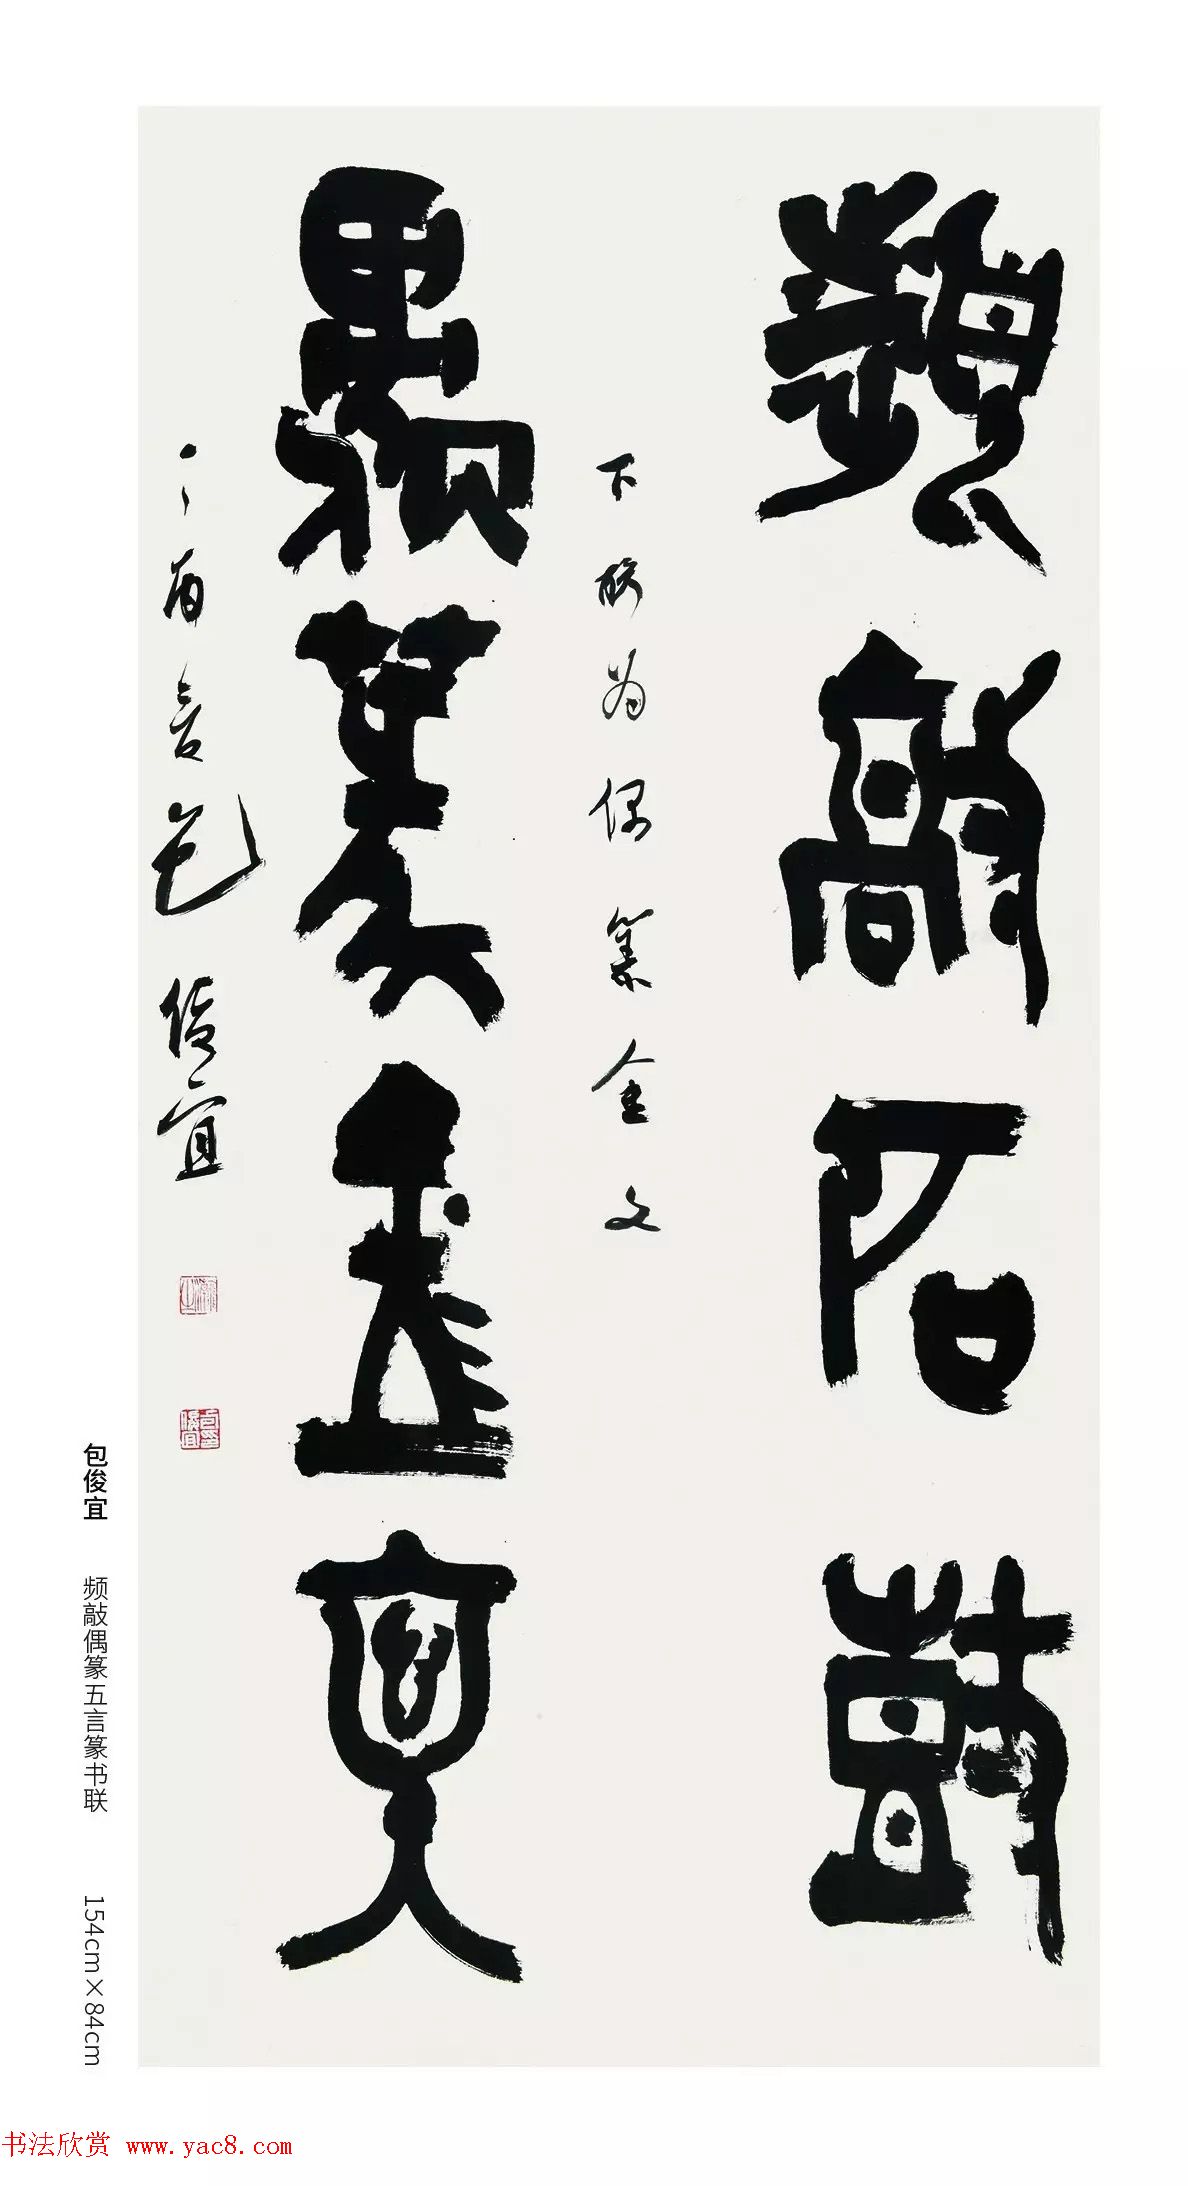 頻敲石鼓
下联为偶篆金文
偶篆金文
丁酉 包俊宜
包俊宜 频敲偶篆五言篆书联 154cm×84cm
书法欣赏 www.yac8.com